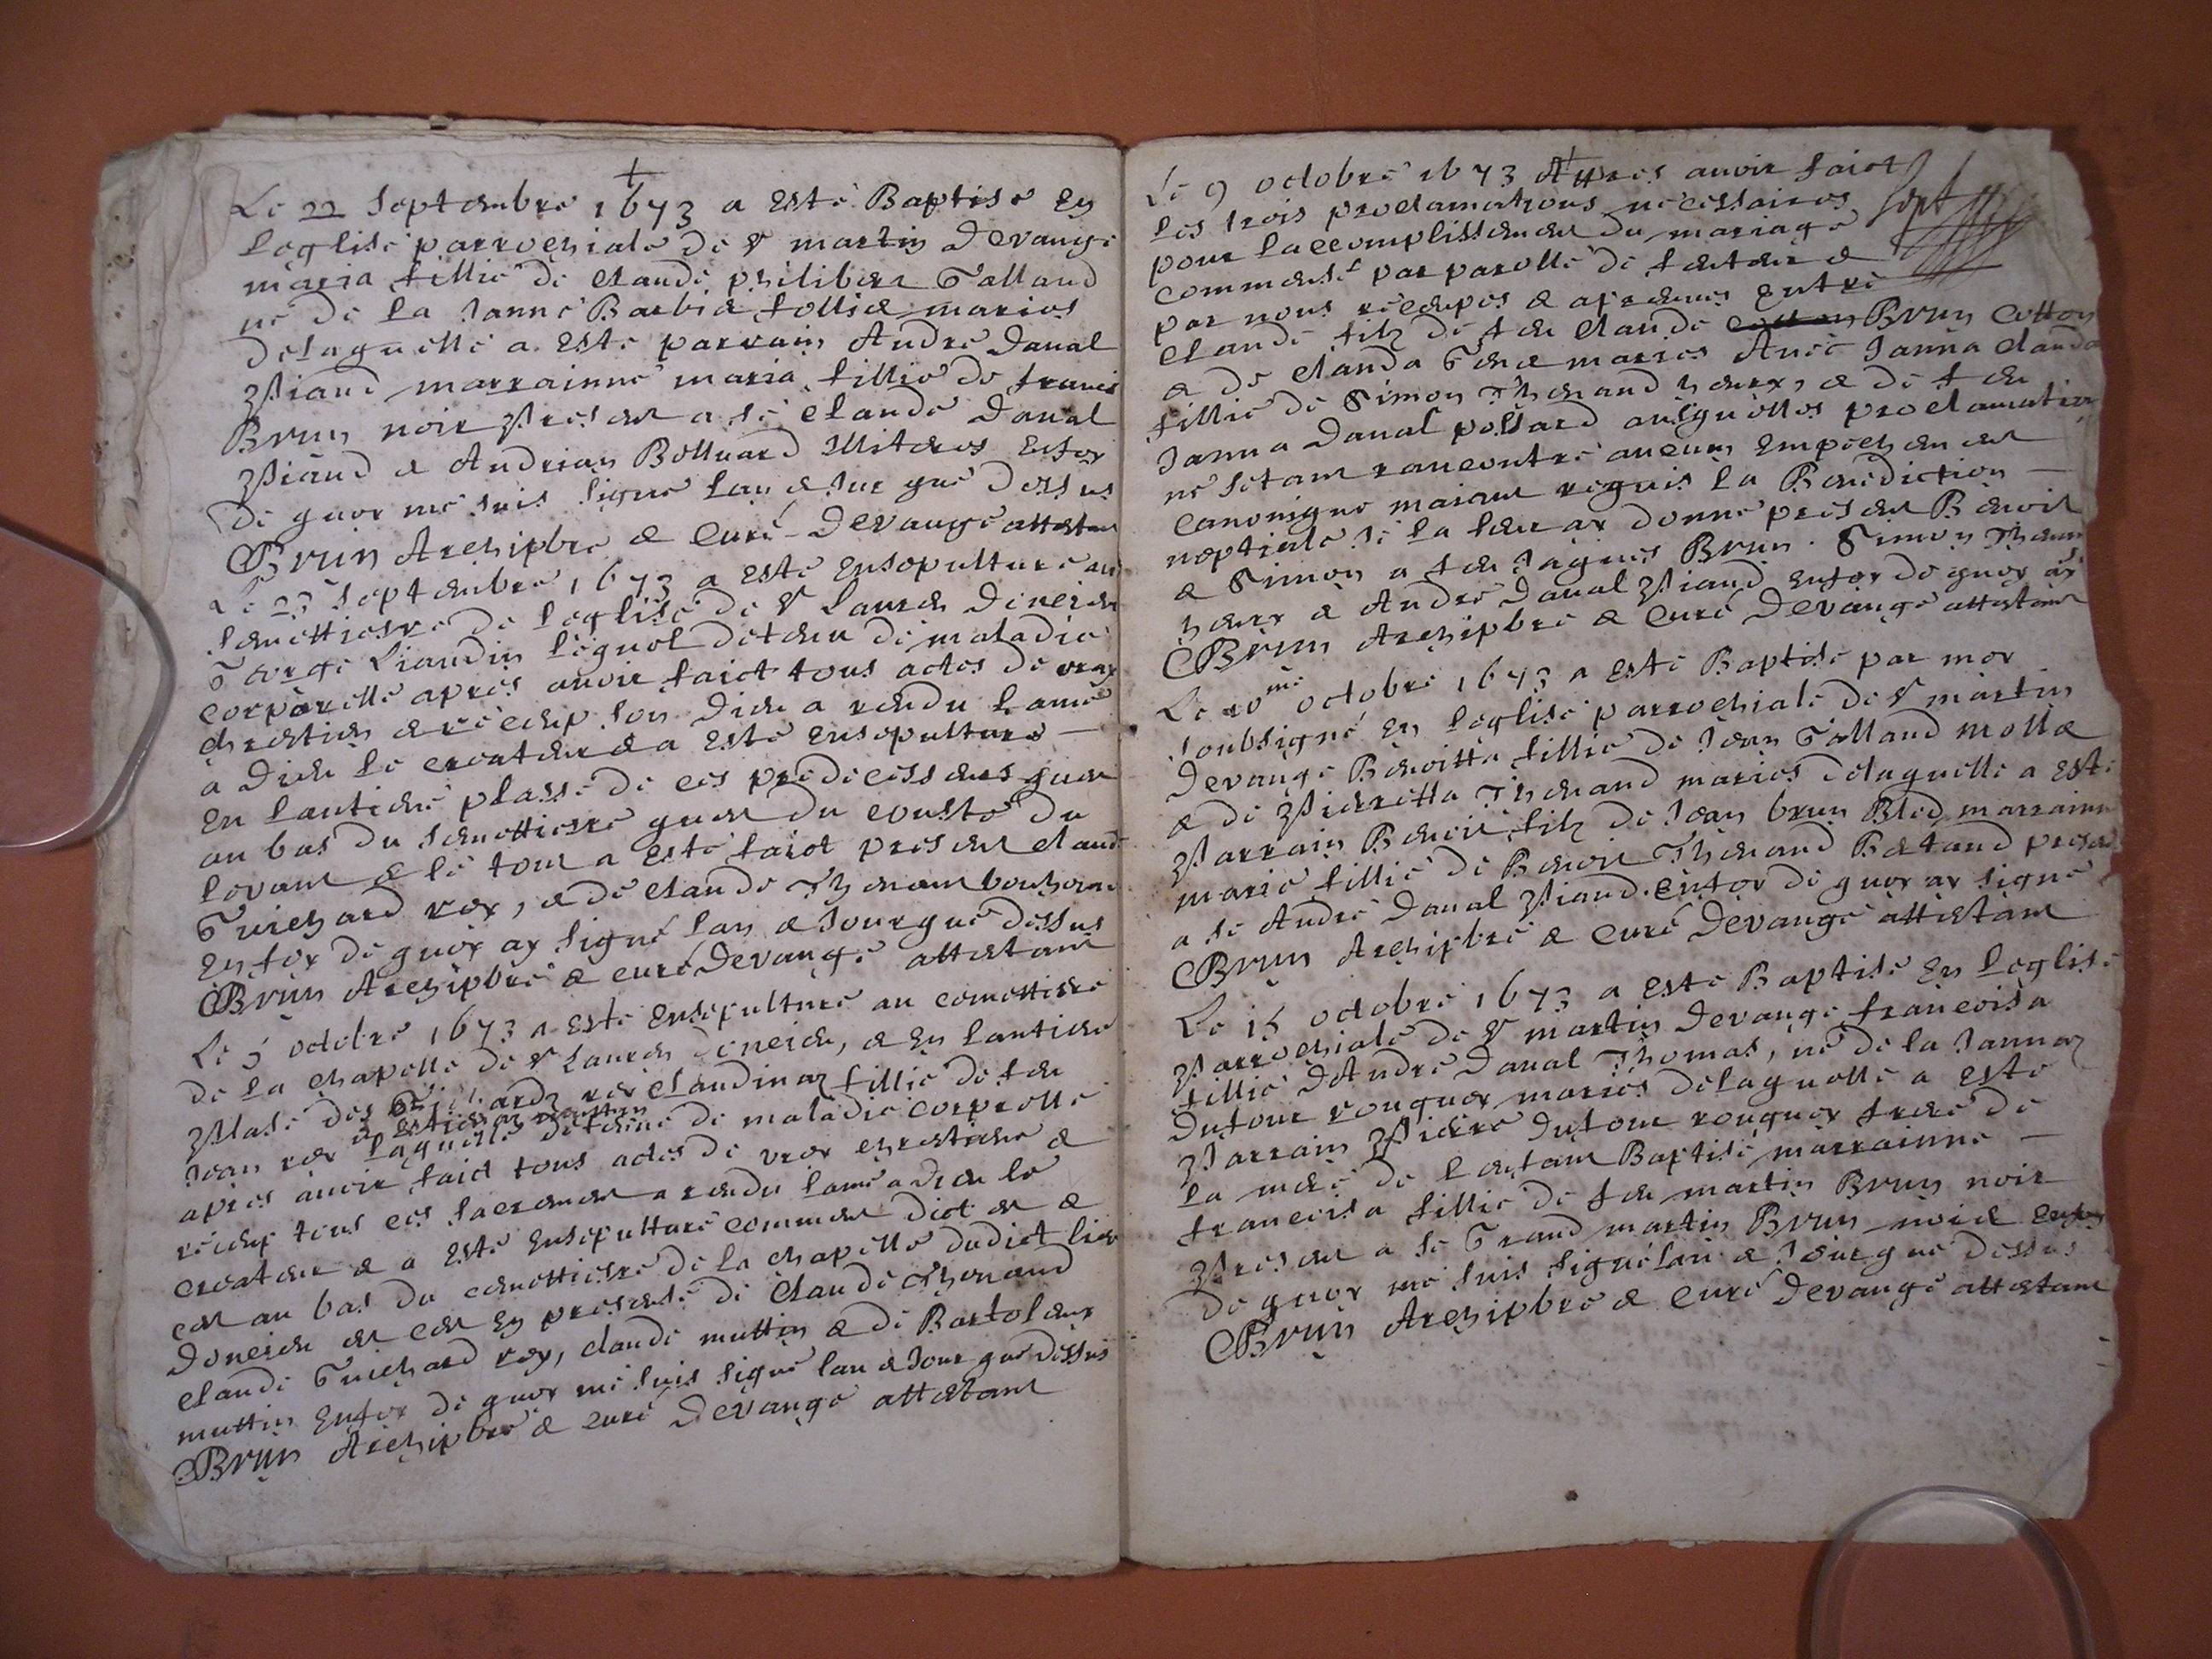 Le 22 septembre 1673 a esté Baptisé En
leglise parrochiale de St martin devange
maria fillie de claude philibert Galland
né de la Janne Barbié tollié mariés
delaquelle a esté parrain André Danal
Piand marrainne maria fillie de francis
Brun noir Present a sé Claude Danal
Piand & Andrian Bolluard enfoy
de quoy me suis signé lan & Jur que dessus
Brun Archipbre & Curé Devange attestant
Le 23 septembre 1673 a esté ensepulturé au
semettiesre de leglise de St Laurens
George Liaudin lequel detenu de maladie
corporelle apres avoir faict tous actes de vray
chrestien & receup son Dieu a rendu lame
a Dieu le createur & a esté ensepulturé
en lantiene plasse de ces predecesseurs
au bas du semettiesre du cousté du
levant & le tout a esté faict present claude
Guichard rey, & de claude Thenant
En foy de quoy ay signé lan & Jour que dessus
Brun Archipbre & curé Devange attestant
Le 5 octobre 1673 a esté ensepulturé au cemettiere
de la chapelle de St Laurens, & en lantiene
Plase des Guichardz rey claudinaz fillie de feu
Jean rey laquelle detenue de maladie corporelle
apres avoir faict tous actes de vray chrestiene &
receup tous ces sacrement a rendu lame a Dieu le
createur & a esté ensepulturé comment dict est &
cest au bas du cemettiesre de la chapelle dudict lieu
en presense de Claude Thenand
claude Guichard rey, claude muttin & de Bartolemy
muttin Enfoy de quoy me suis signé lan & Jour que dessus
Brun Archipbre & curé Devange attestant
Le 9 octobre 1673 Appres avoir faict
les trois proclamations necessaires
pour laccomplissement du mariage
commensé par parolle de
par nous receupes & entre
Claude filz de feu claude Brun Cotton
& de clauda mariés Avec Janna clauda
fillie de Simon Thenand, & de feu
Janna Danal possard ausquelles proclamation
ne setant rancontré aucun Empechement
canonique maiant requis la Benediction
noptiale Je la leur ay donné present Benoit
& Simon a feu Jaques Brun. Simon Thenand
& André Danal Piand enfoy de quoy ay
Brun Archipbre & Curé Devange attestant
Le 10me octobre 1673 a esté Baptisé par moy
soubsigné en leglise parrochiale de St martin
devange Benoitta fillie de Jean Galland mollié
& de Pierretta Thenand mariés delaquelle a esté
Parrain Benoit filz de Jean brun Bled marrainne
marie fillie de Benoit Thenand present
a sé André Danal Piand. enfoy de quoy ay signé
Brun Archipbre & Curé Devange attestant
Le 15 octobre 1673 a esté Baptisé en leglise
Parrochiale de St martin devange francoisa
fillie dAndré Danal Thomas, né de la Jannaz
Dufour mariés delaquelle a esté
Parrain Pierre Dufour frere de
la mere de lentant Baptisé marrainne
francoisa fillie de feu martin Brun noir
Present a sé Grand martin Brun noir enfoy
de quoy me suis signé lan & Jour que dessus
Brun Archipbre & curé Devange attestant